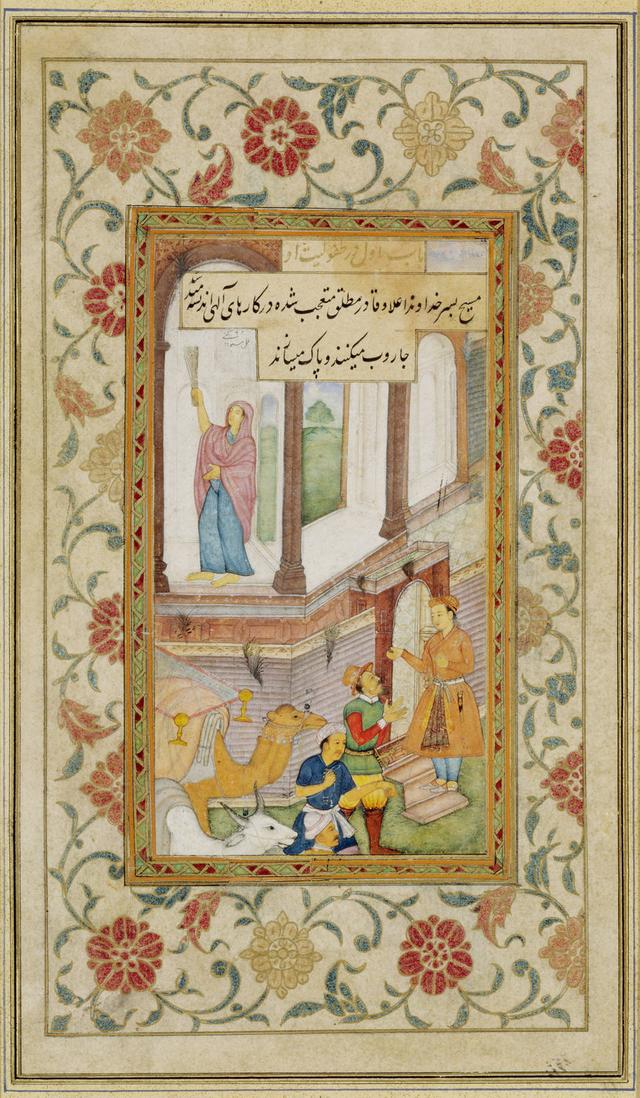 باب اول در طفولیت او
مسیح بسر خداوند اعلا و قادر مطلق متعجب شده در کارهای آلهی اندیشه میکنند
جاروب میکنند و پاک میسازند